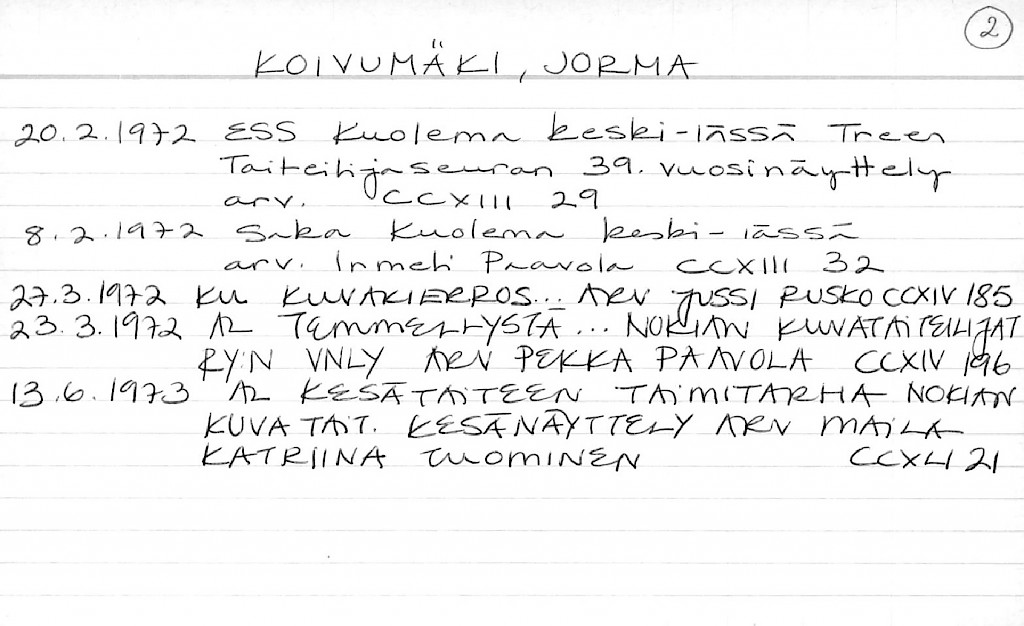 2
KOIVUMÄKI, JORMA
20.2.1972 ESS Kuolema keski-iässä Treen
Taiteilijaseuran 39. vuosinäyttely
arv. CCXIII 29
8.2.1972 SaKa Kuolema keski-iässä
arv. Inmeli Paavola CCXIII 32
27.3.1972 KU KUVAKIERROS... ARV JUSSI RUSKO CCXIV 185
23.3.1972 AL TEMMELLYSTÄ... NOKIAN KUVATAITEILIJAT
RY:N VNLY ARV PEKKA PAAVOLA CCXIV 196
13.6.1973 AL KESÄTAITEEN TAIMITARHA NOKIAN
KUVATAIT. KESÄNÄYTTELY ARV MAILA
KATRIINA TUOMINEN CCXLI 21